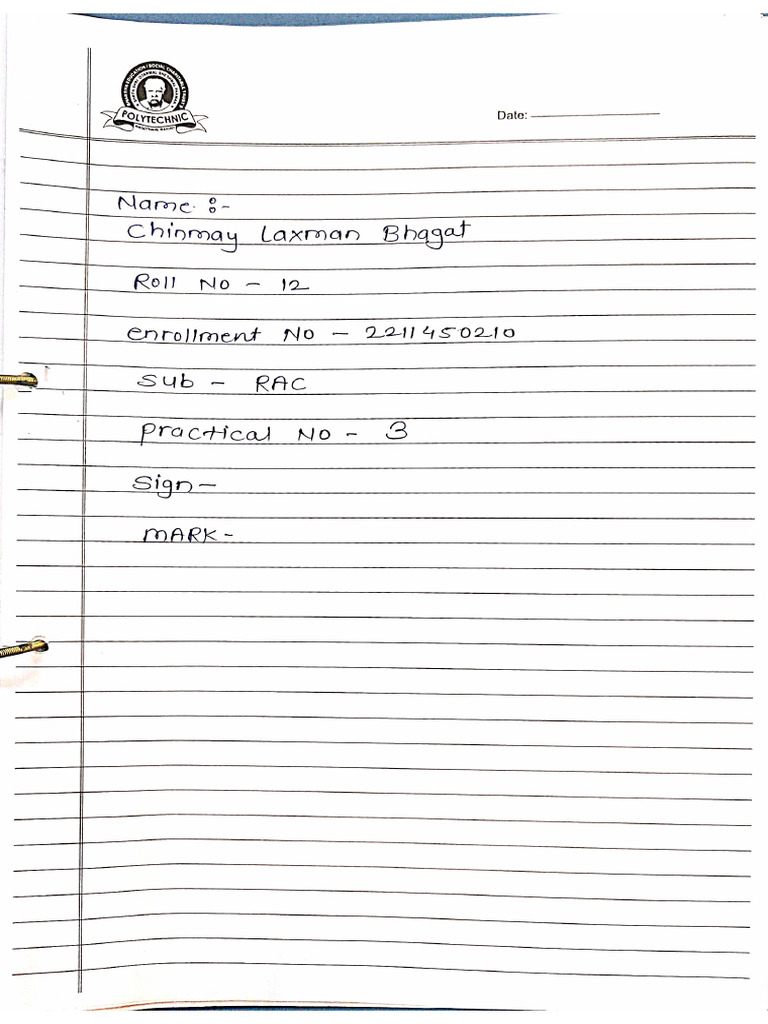 POLYTECHNIC
Date:
Name :-
Chinmay Laxman Bhagat
Roll No - 12
enrollment No - 2211450210
Sub - RAC
practical No - 3
Sign -
MARK -